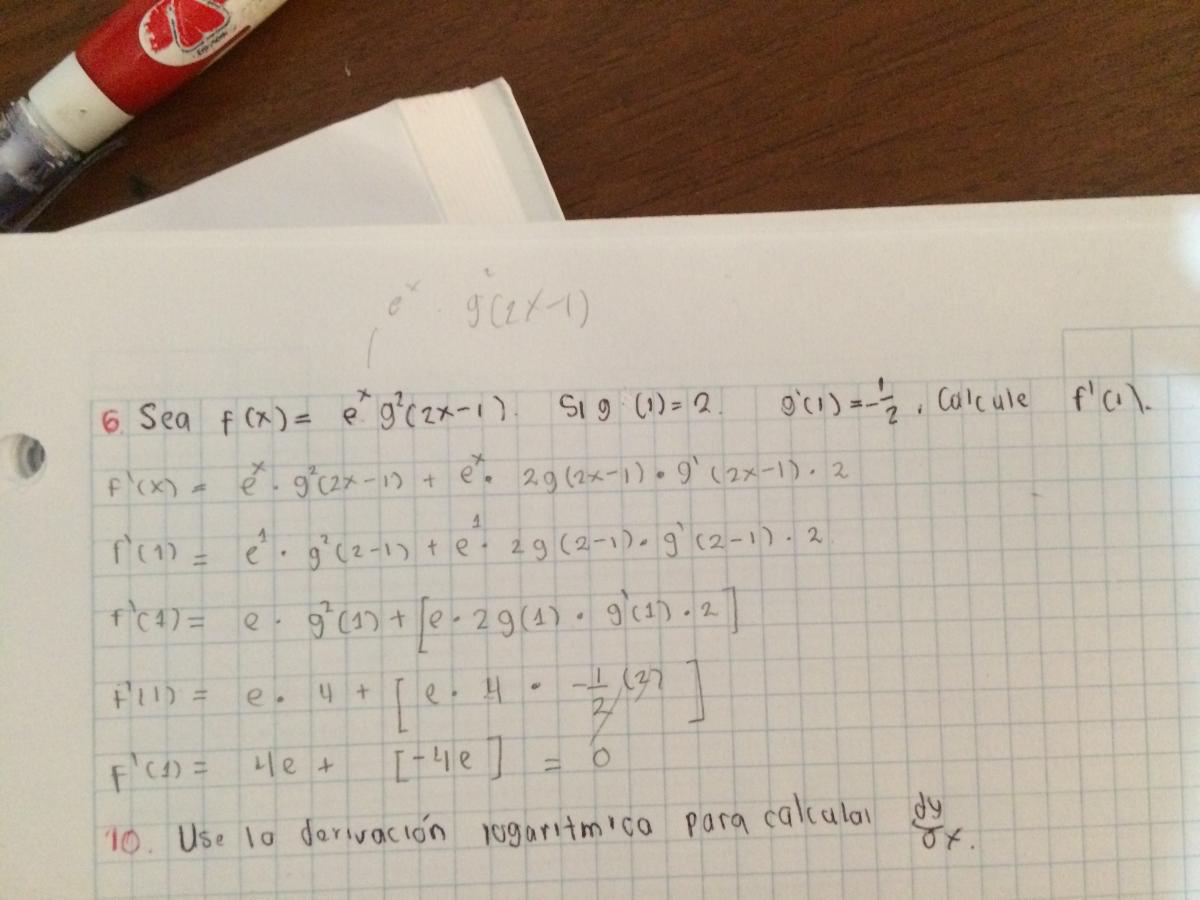 e^x · g²(2x-1)
6. Sea f(x) = e^x g²(2x-1). Si g (1) = 2. g'(1) = -1/2, Calcule f'(1).
f'(x) = e^x · g²(2x-1) + e^x · 2g(2x-1) · g'(2x-1) · 2
f'(1) = e^1 · g²(2-1) + e^1 · 2g(2-1) · g'(2-1) · 2
f'(1) = e · g²(1) + [e · 2g(1) · g'(1) · 2]
f'(1) = e · 4 + [e · 4 · -1/2 (2)]
f'(1) = 4e + [-4e] = 0
10. Use la derivación logaritmica para calcular dy/dx.